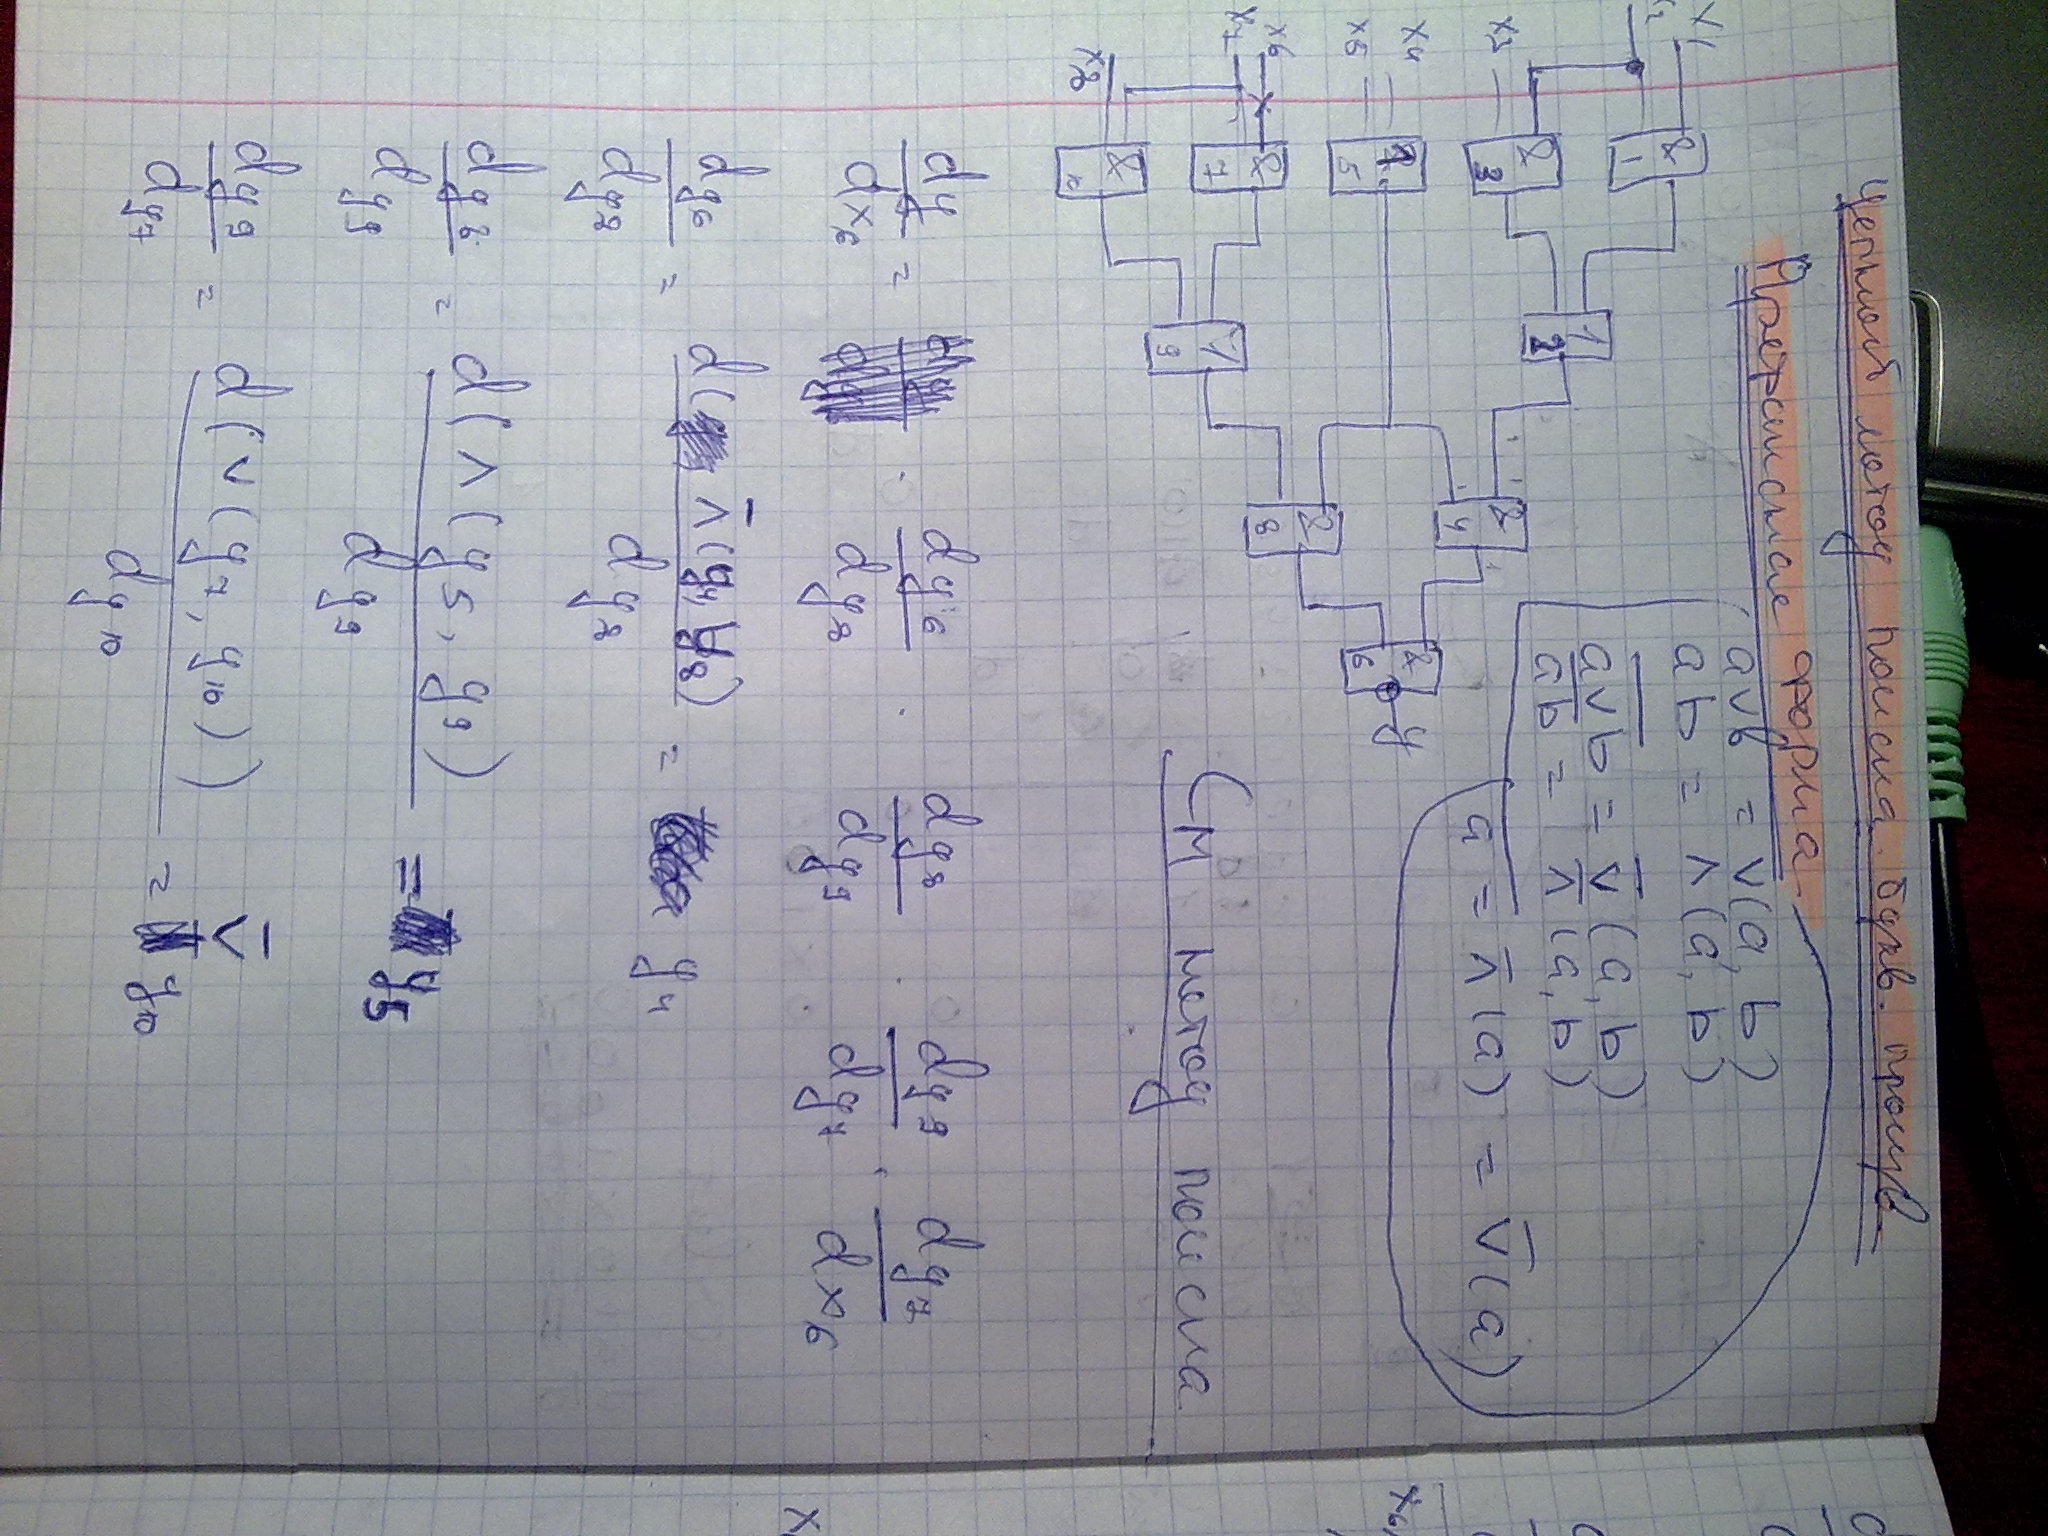 Цепной метод поиска булев. произв
Префиксная форма.
a∨b = ∨(a, b)
ab = ∧(a, b)
a∨b̅ = ∨̅ (a, b)
a̅b̅ = ∧̅ (a, b)
a̅ = ∧̅ (a) = ∨̅ (a)
x1
x2
x3
x4
x5
x6
x7
x8
& 1
& 3
1 2
5
& 7
&
1 9
& 4
& 8
& 6
y
См метод поиска
dy/dx6 = dy6/dy8 · dy8/dy9 · dy9/dy7 · dy7/dx6
dy6/dy8 = = y4
dy8/dy9 = d(∧(y5, y9)/dy9 = y5
dy9/dy7 = d(∨(y7, y10))/dy10 = ∨̅ y10